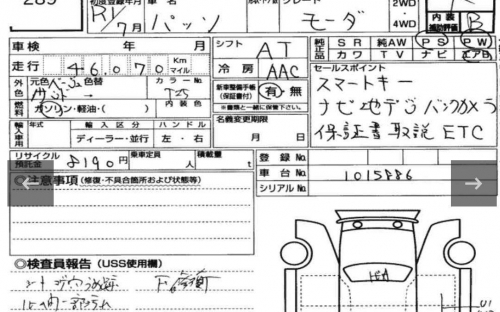 289
初度登録年月 R1/7月
車名
パッソ
グレード
モーダ
2WD
・4WD
内装
補助評価 B
車検 年 月
シフト AT
純正品 SR 純AW PS PW
カワ TV ナビ エアB
走行 46,070 Km マイル
冷房 AAC
セールスポイント
外色 元色 カラーNo. T25
新車整備手帳（保証書付） 有・無
（※書類と一緒に保管）
スマートキー
ナビ地デジ バックカメラ
保証書 取説 ETC
燃料 ガソリン・軽油・( )
内装色
名義変更期限
月 日
輸入車用 年式 輸入区分 ハンドル
ディーラー・並行 左・右
リサイクル預託金 8190円
乗車定員 人
積載量 t
登録No.
車台No. 1015886
シリアルNo.
◎注意事項（修復・不具合箇所および状態等）
◎検査員報告（USS使用欄）